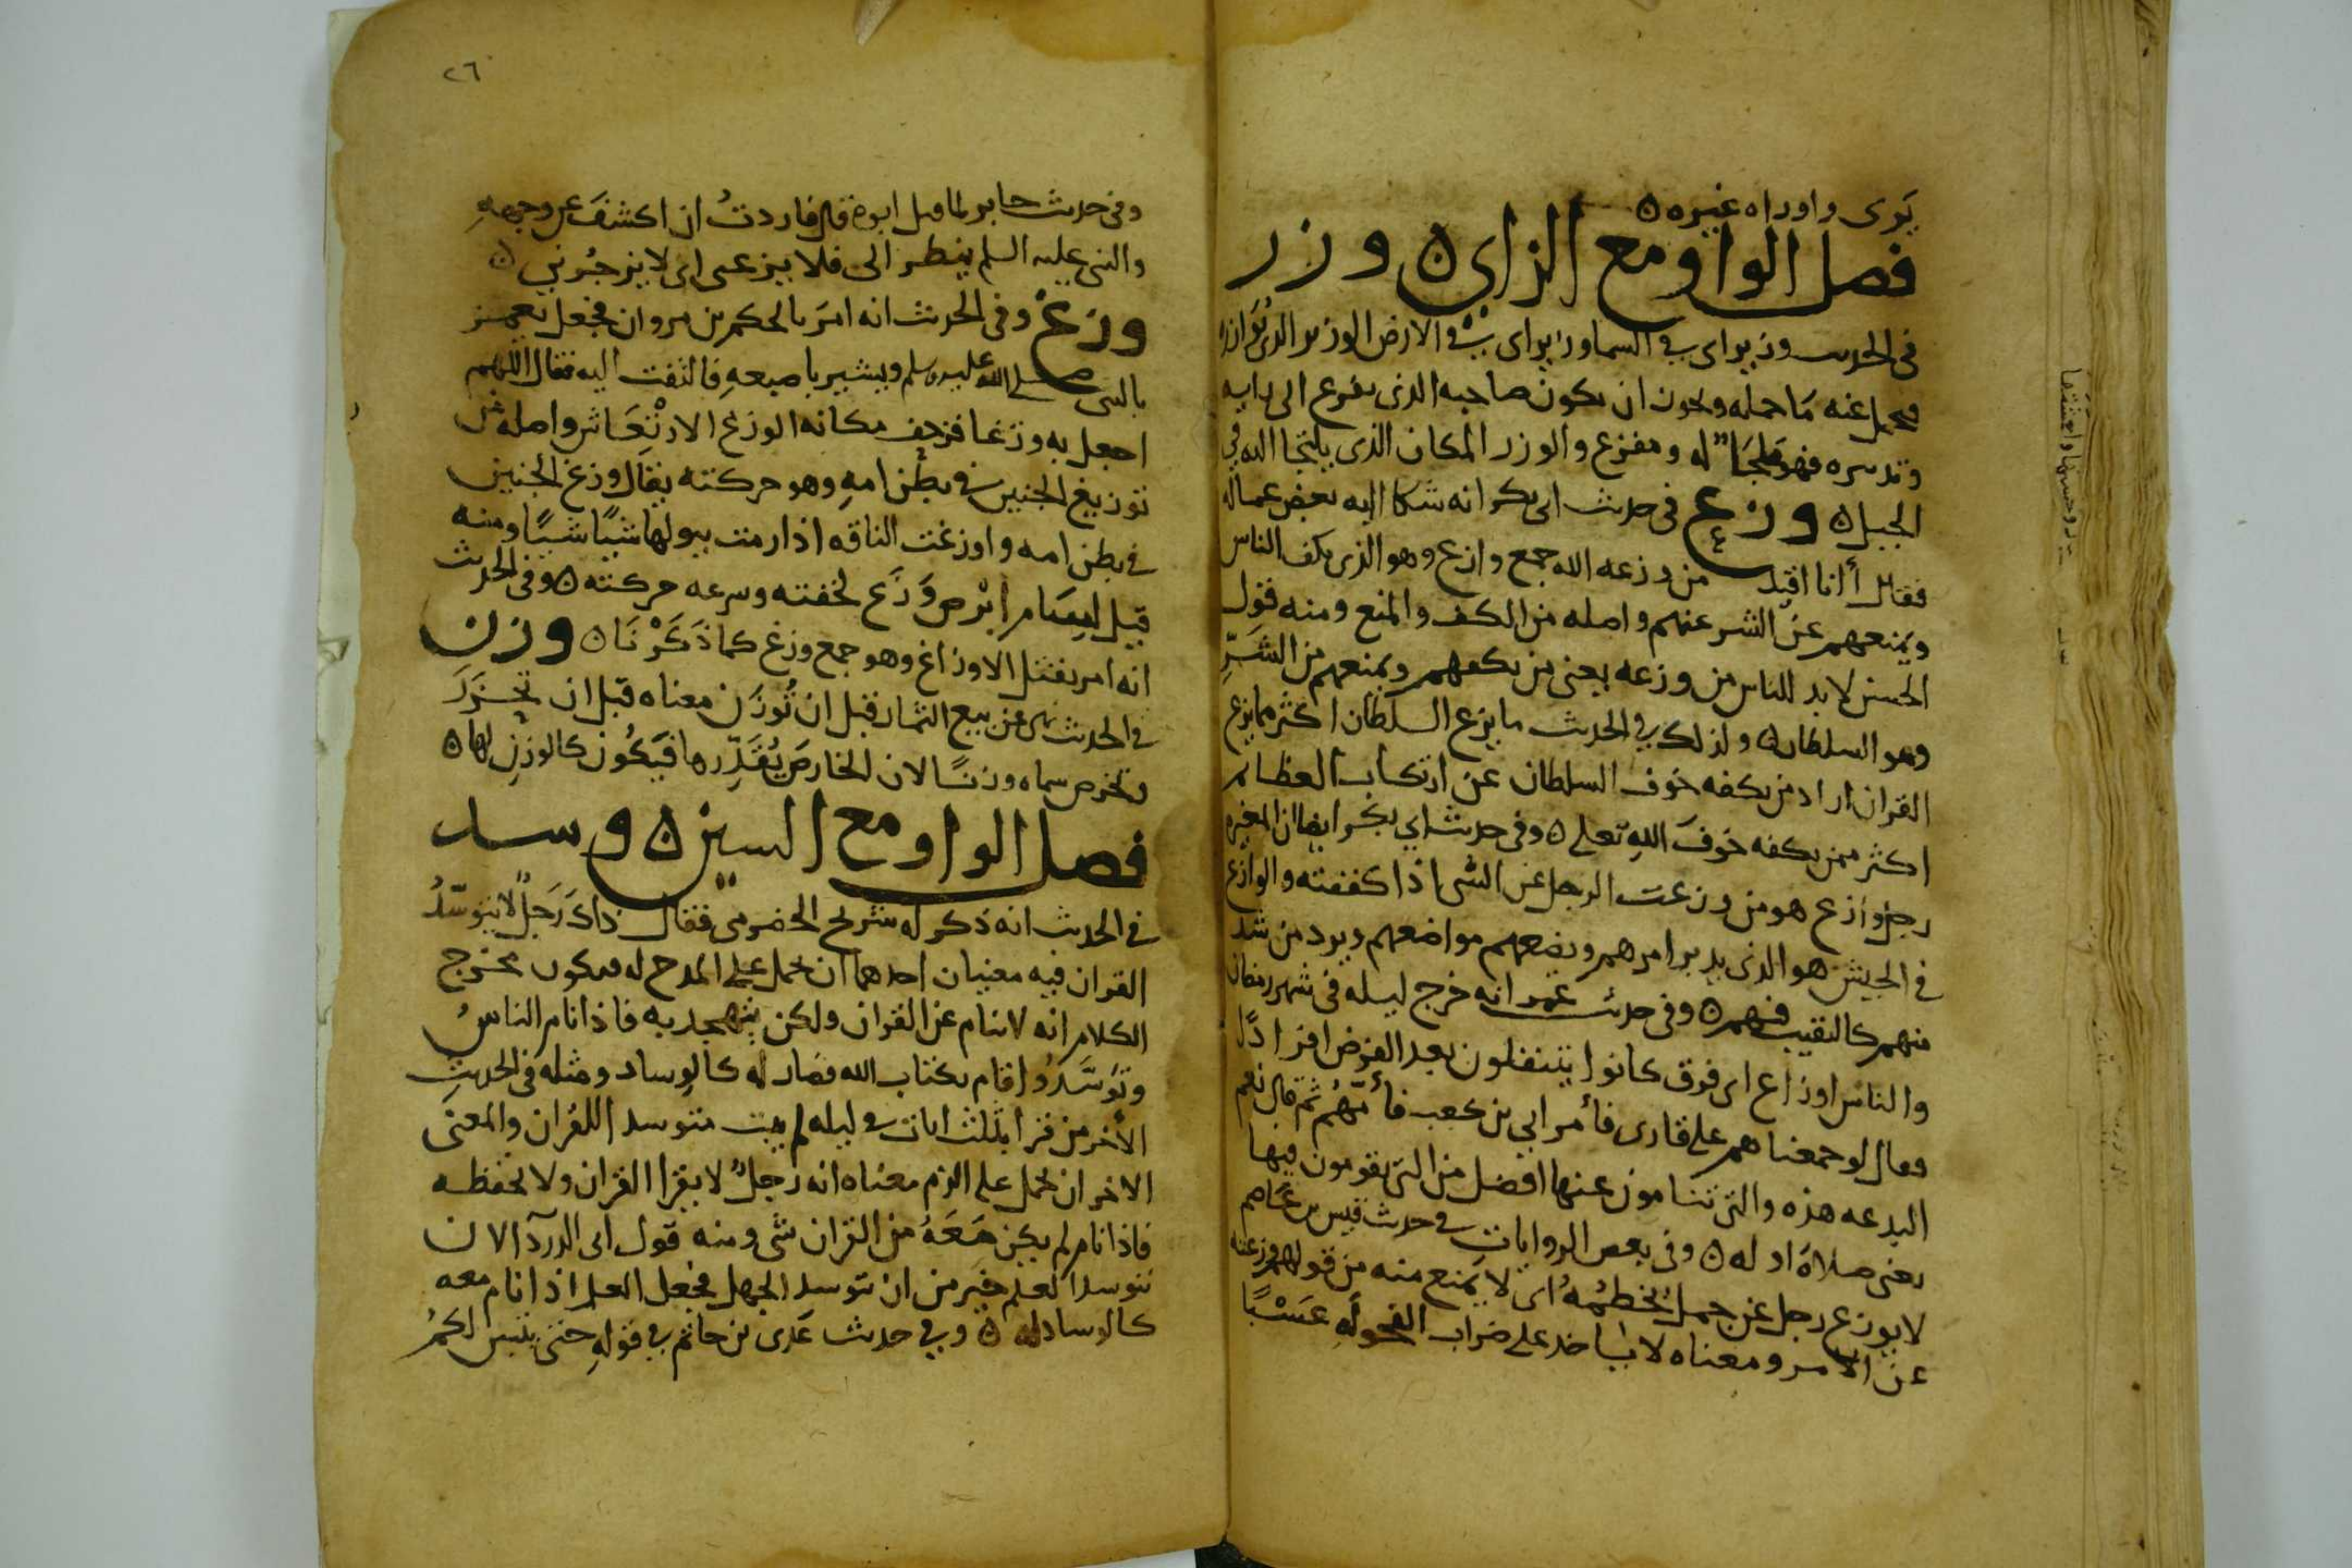 يَرى واوراه غيره ه
فصل الواو مع الزاي ه وزر
في الحديث وزيراي في السما وزيراي في الارض الوزير الذي يوازره
فيحمل عنه مَا حمله ويجوز ان يكون صاحبه الذي يفزع الى رايه
وتدبيره فهو مَلجَا له ومفزع والوزر المكان الذي يلتجا اليه في
الجبل ه وزع في حديث ابى بكر انه شكا اليه بعض عماله
فقال أانا اقيد من وزعه الله جمع وازع وهو الذي يكف الناس
ويمنعهم عن الشر عنهم واصله من الكف والمنع ومنه قول
الحسن لا بد للناس من وزعه يعني من يكفهم ويمنعهم من الشَرِّ
وهو السلطان ه ولذلك في الحديث ما يزع السلطان اكثر مما يزع
القران اراد من يكفه خوف السلطان عن ارتكاب العظائم
اكثر ممن يكفه خوفَ اللهِ تعلى ه وفي حديث ابي بكر ايضا ان المغيره
رجل وازع هو من وزعت الرجل عن الشى اذا كففته والوازع
في الجيش هو الذي يدبر امرهم ويضعهم مواضعهم ويرد من شد
منهم كالنقيب فيهم ه وفي حديث عمر انه خرج ليله في شهر رمضان
والناس اوزاع اي فرق كانوا يتنفلون بعد الفرض افرادًا
فقال لو جمعناهم على قارى فأمر ابي بن كعب فأمّهُم ثم قال نعم
البدعه هذه والتي تنامون عنها افضل من التي يقومون فيها
يعنى صلاة اوله ه وفي بعض الروايات في حديث قيس بن عَاصم
لا يوزع رجل عن جمل يخطمهُ اى لا يمنع منه من قولهم وزعته
عن الامر ومعناه لا ياخد على ضراب الفحوله عَسْبًا
٢٦
وفي حديث جابر لما قتل ابوه قال فاردتُ ان اكشفَ عن وجههِ
والنبى عليه السلم ينظر الى فلا يزعنى اى لا يزجُرني ه
وزغ وفي الحديث انه امرَ بالحكم بن مروان فجعل يغمز
بالنبى صلى الله عليه وسلم ويشير باصبعهِ فالتفت اليه فقال اللهم
اجعل به وزغا فرجف مكانه الوزغ الارْتعَاش واصله من
توزيغ الجنين في بطن امهِ وهو حركته يقال وزغ الجنين
في بطن امه واوزغت الناقه اذا رمت ببولها شيًا شيًا ومنه
قيل لسَام ابْرص وَزَغ لخفته وسرعه حركته ه وفي الحديث
انه امر بقتل الاوزاغ وهو جمع وزغ كما ذَكَرْنَا ه وزن
في الحديث نهى عن بيع الثمار قبل ان تُوزَن معناه قبل ان تُحْزَرَ
وتخرص سماه وزنًا لان الخارصَ يُقَدِّرها فيَكُون كالوزنِ لها ه
فصل الواو مع السين ه وسد
في الحديث انه ذكر له شريح الحضرمى فقال ذاك رَجَلٌ لا يتوسّدُ
القران فيه معنيان احدهما ان يحمل على المدح له فيكون مخرج
الكلام انه لا ينام عن القران ولكن يتهجد به فاذا نام الناسُ
وتَوَسَّدُوا قام بكتاب الله فصَار له كالوِساد ومثله في الحديثِ
الأخر من قرا بثلث ايات في ليله لم يبت متوسد اللقران والمعنى
الاخر ان يحمل على الذم معناه انه رجلٌ لا يقرا القران ولا يحفظه
فاذا نام لم يكن مَعَهُ من القران شى ومنه قول ابى الدردآ لان
تتوسد العلم خير من ان تتوسد الجهل فجعل العلم اذا نام معه
كالوساد له ه وفي حديث عَدى بن حاتم في قولهِ حتى يتبين لكمُ